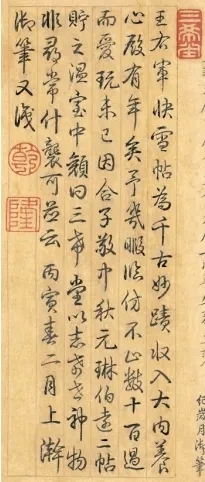 王右軍快雪帖為千古妙蹟收入大內養
心殿有年矣予幾暇臨仿不止數十百過
而愛玩未已因合子敬中秋元琳伯遠二帖
貯之溫室中顏曰三希堂以志希世神物
非尋常什襲可並云丙寅春二月上澣
御筆又識
三希堂
乾
隆
御筆